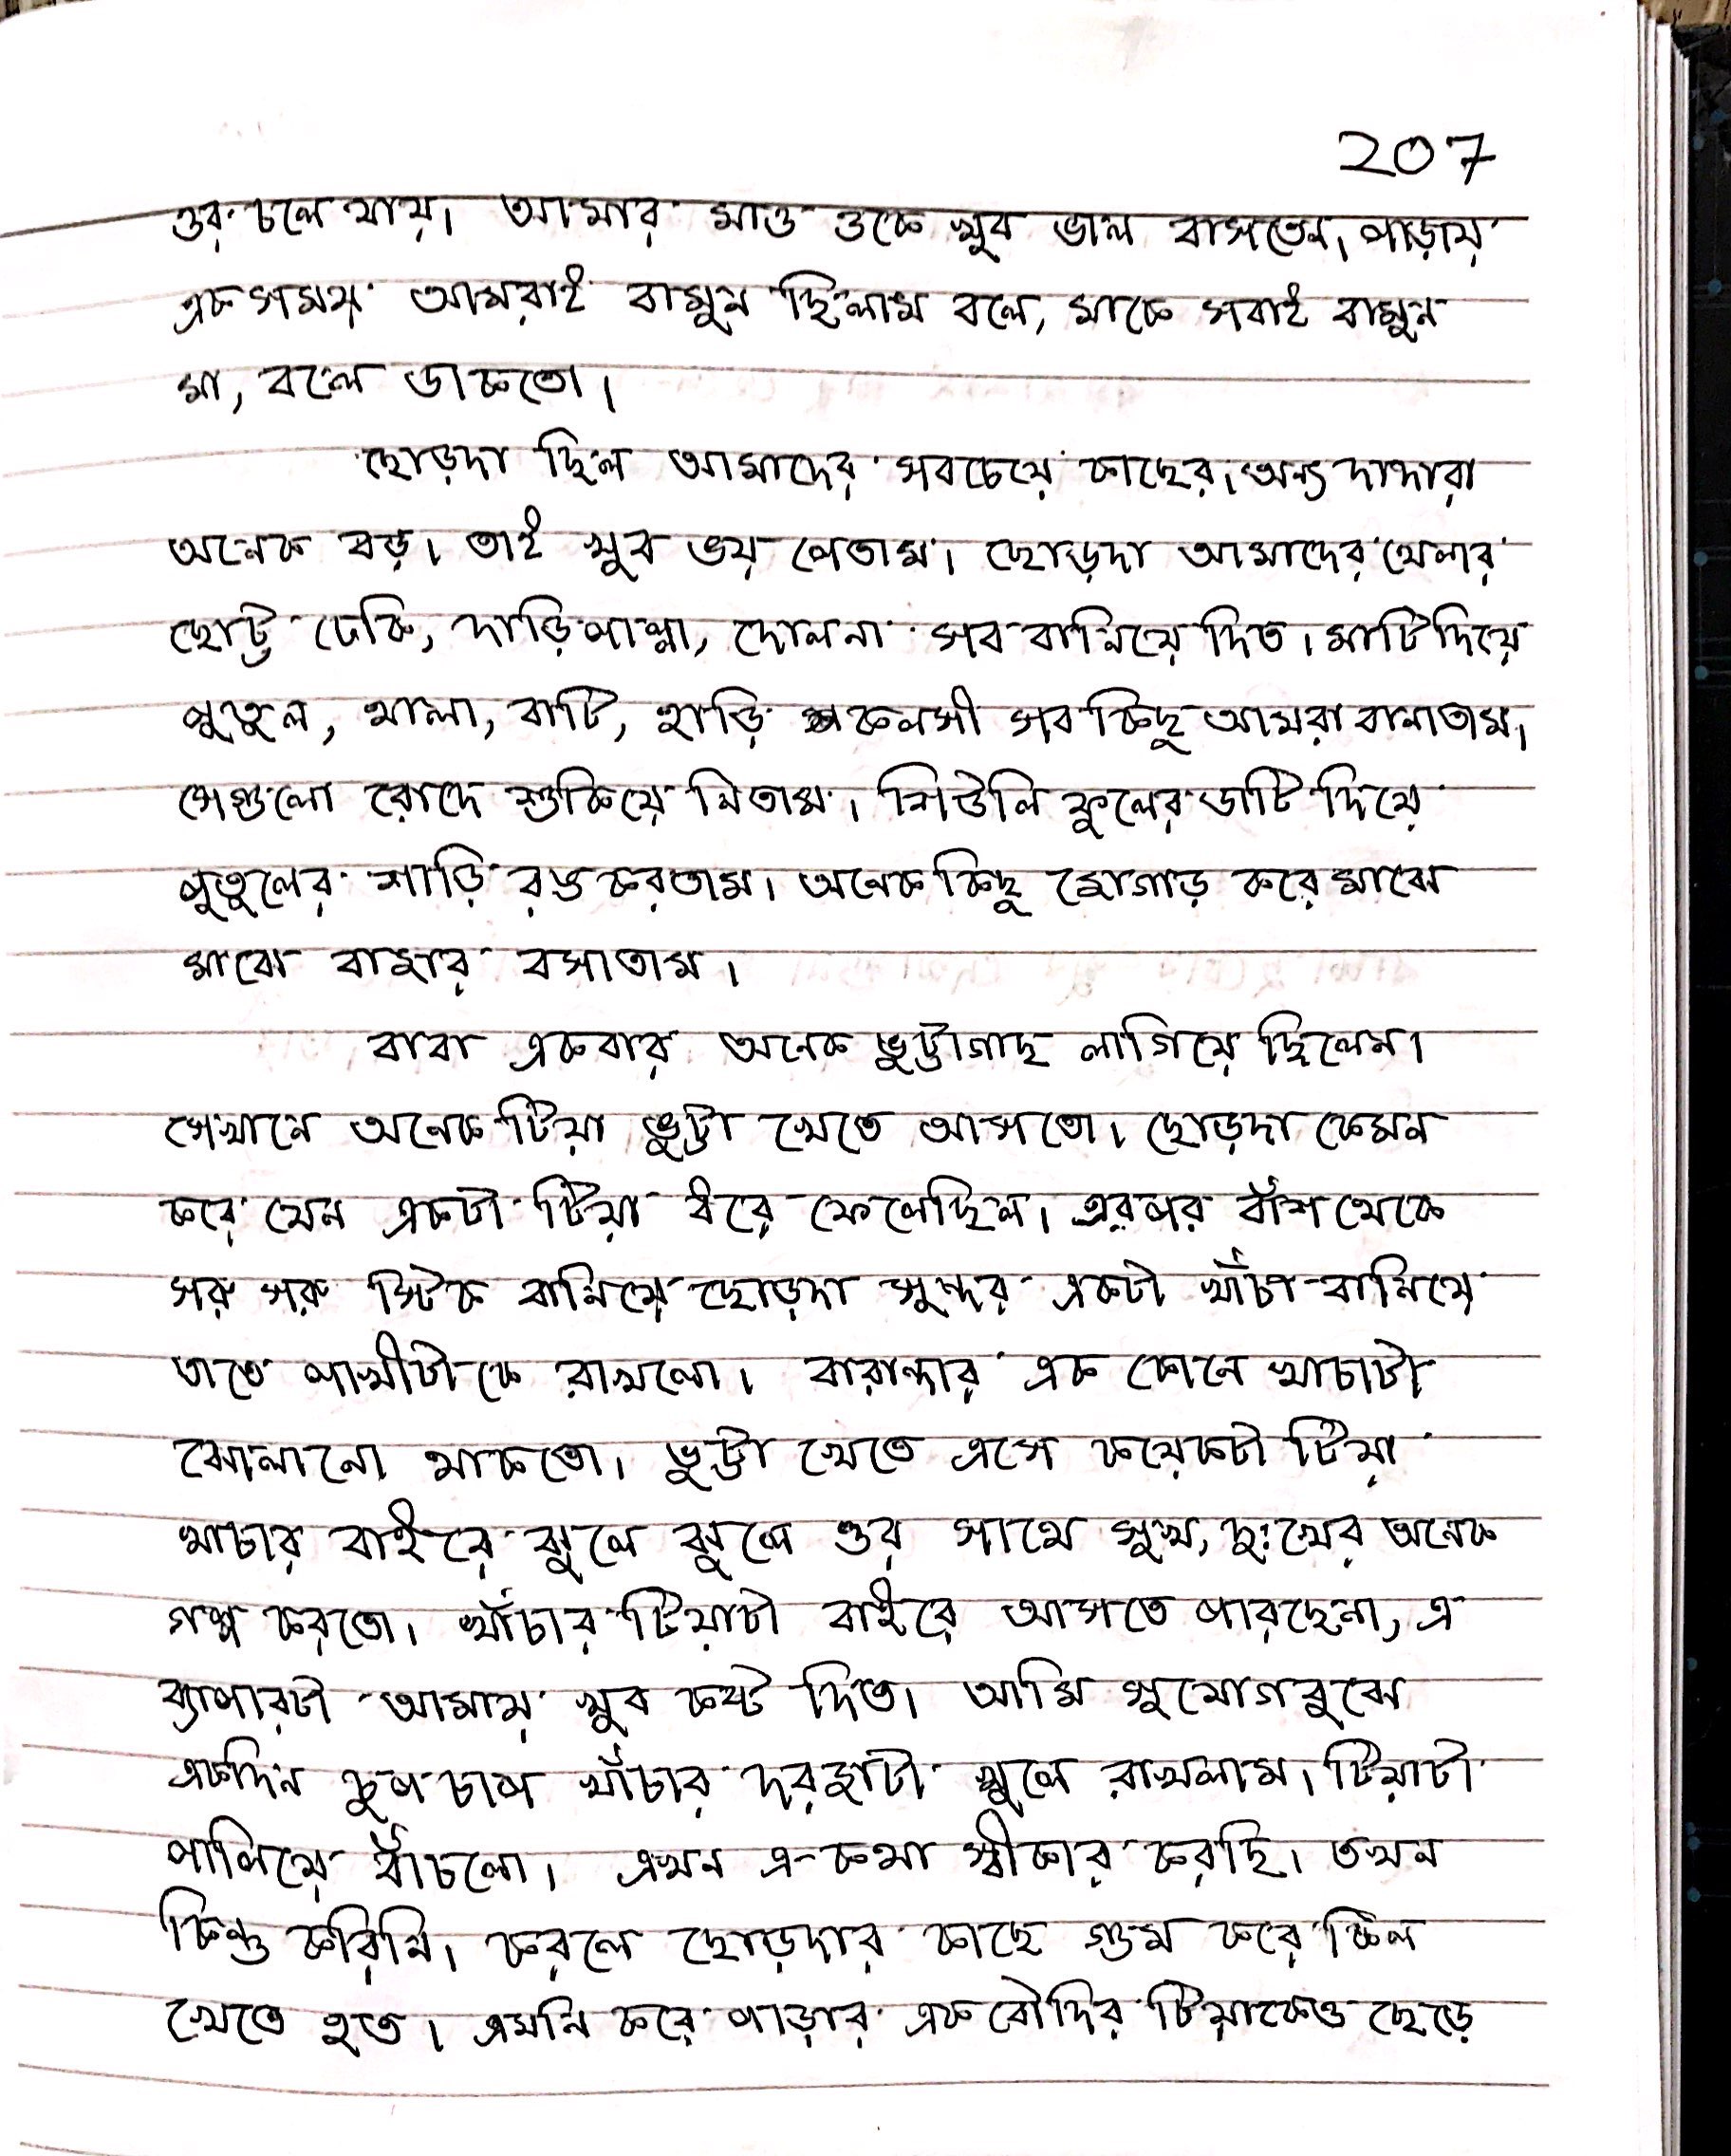 207
ওর চলে যায়। আমার মাও ওকে খুব ভাল বাসতেন। পাড়ায়
এক সময় আমরাই বামুন ছিলাম বলে, মাকে সবাই বামুন
মা, বলে ডাকতো।
ছোড়দা ছিল আমাদের সবচেয়ে কাছের। অন্য দাদারা
অনেক বড়। তাই খুব ভয় পেতাম। ছোড়দা আমাদের খেলার
ছোট্ট ঢেকি, দাড়িপাল্লা, দোলনা সব বানিয়ে দিত। মাটি দিয়ে
পুতুল, থালা, বাটি, হাড়ি কলসী সব কিছু আমরা বানাতাম।
সেগুলো রোদে শুকিয়ে নিতাম। শিউলি ফুলের ডাটি দিয়ে
পুতুলের শাড়ি রঙ করতাম। অনেক কিছু জোগাড় করে মাঝে
মাঝে বাজার বসাতাম।
বাবা একবার অনেক ভুট্টাগাছ লাগিয়ে ছিলেন।
সেখানে অনেক টিয়া ভুট্টা খেতে আসতো। ছোড়দা কেমন
করে যেন একটা টিয়া ধরে ফেলেছিল। এরপর বাঁশ থেকে
সরু সরু স্টিক বানিয়ে ছোড়দা সুন্দর একটা খাঁচা বানিয়ে
তাতে পাখীটাকে রাখলো। বারান্দার এক কোনে খাচাটা
ঝোলানো থাকতো। ভুট্টা খেতে এসে কয়েকটা টিয়া
খাচার বাইরে ঝুলে ঝুলে ওর সাথে সুখ, দুঃখের অনেক
গল্প করতো। খাঁচার টিয়াটা বাইরে আসতে পারছেনা, এ
ব্যাপারটা আমায় খুব কষ্ট দিত। আমি সুযোগ বুঝে
একদিন চুপ চাপ খাঁচার দরজাটা খুলে রাখলাম। টিয়াটা
পালিয়ে বাঁচলো। এখন এ-কথা স্বীকার করছি। তখন
কিন্তু করিনি। করলে ছোড়দার কাছে গুম করে কিল
খেতে হত। এমনি করে পাড়ার এক বৌদির টিয়াকেও ছেড়ে